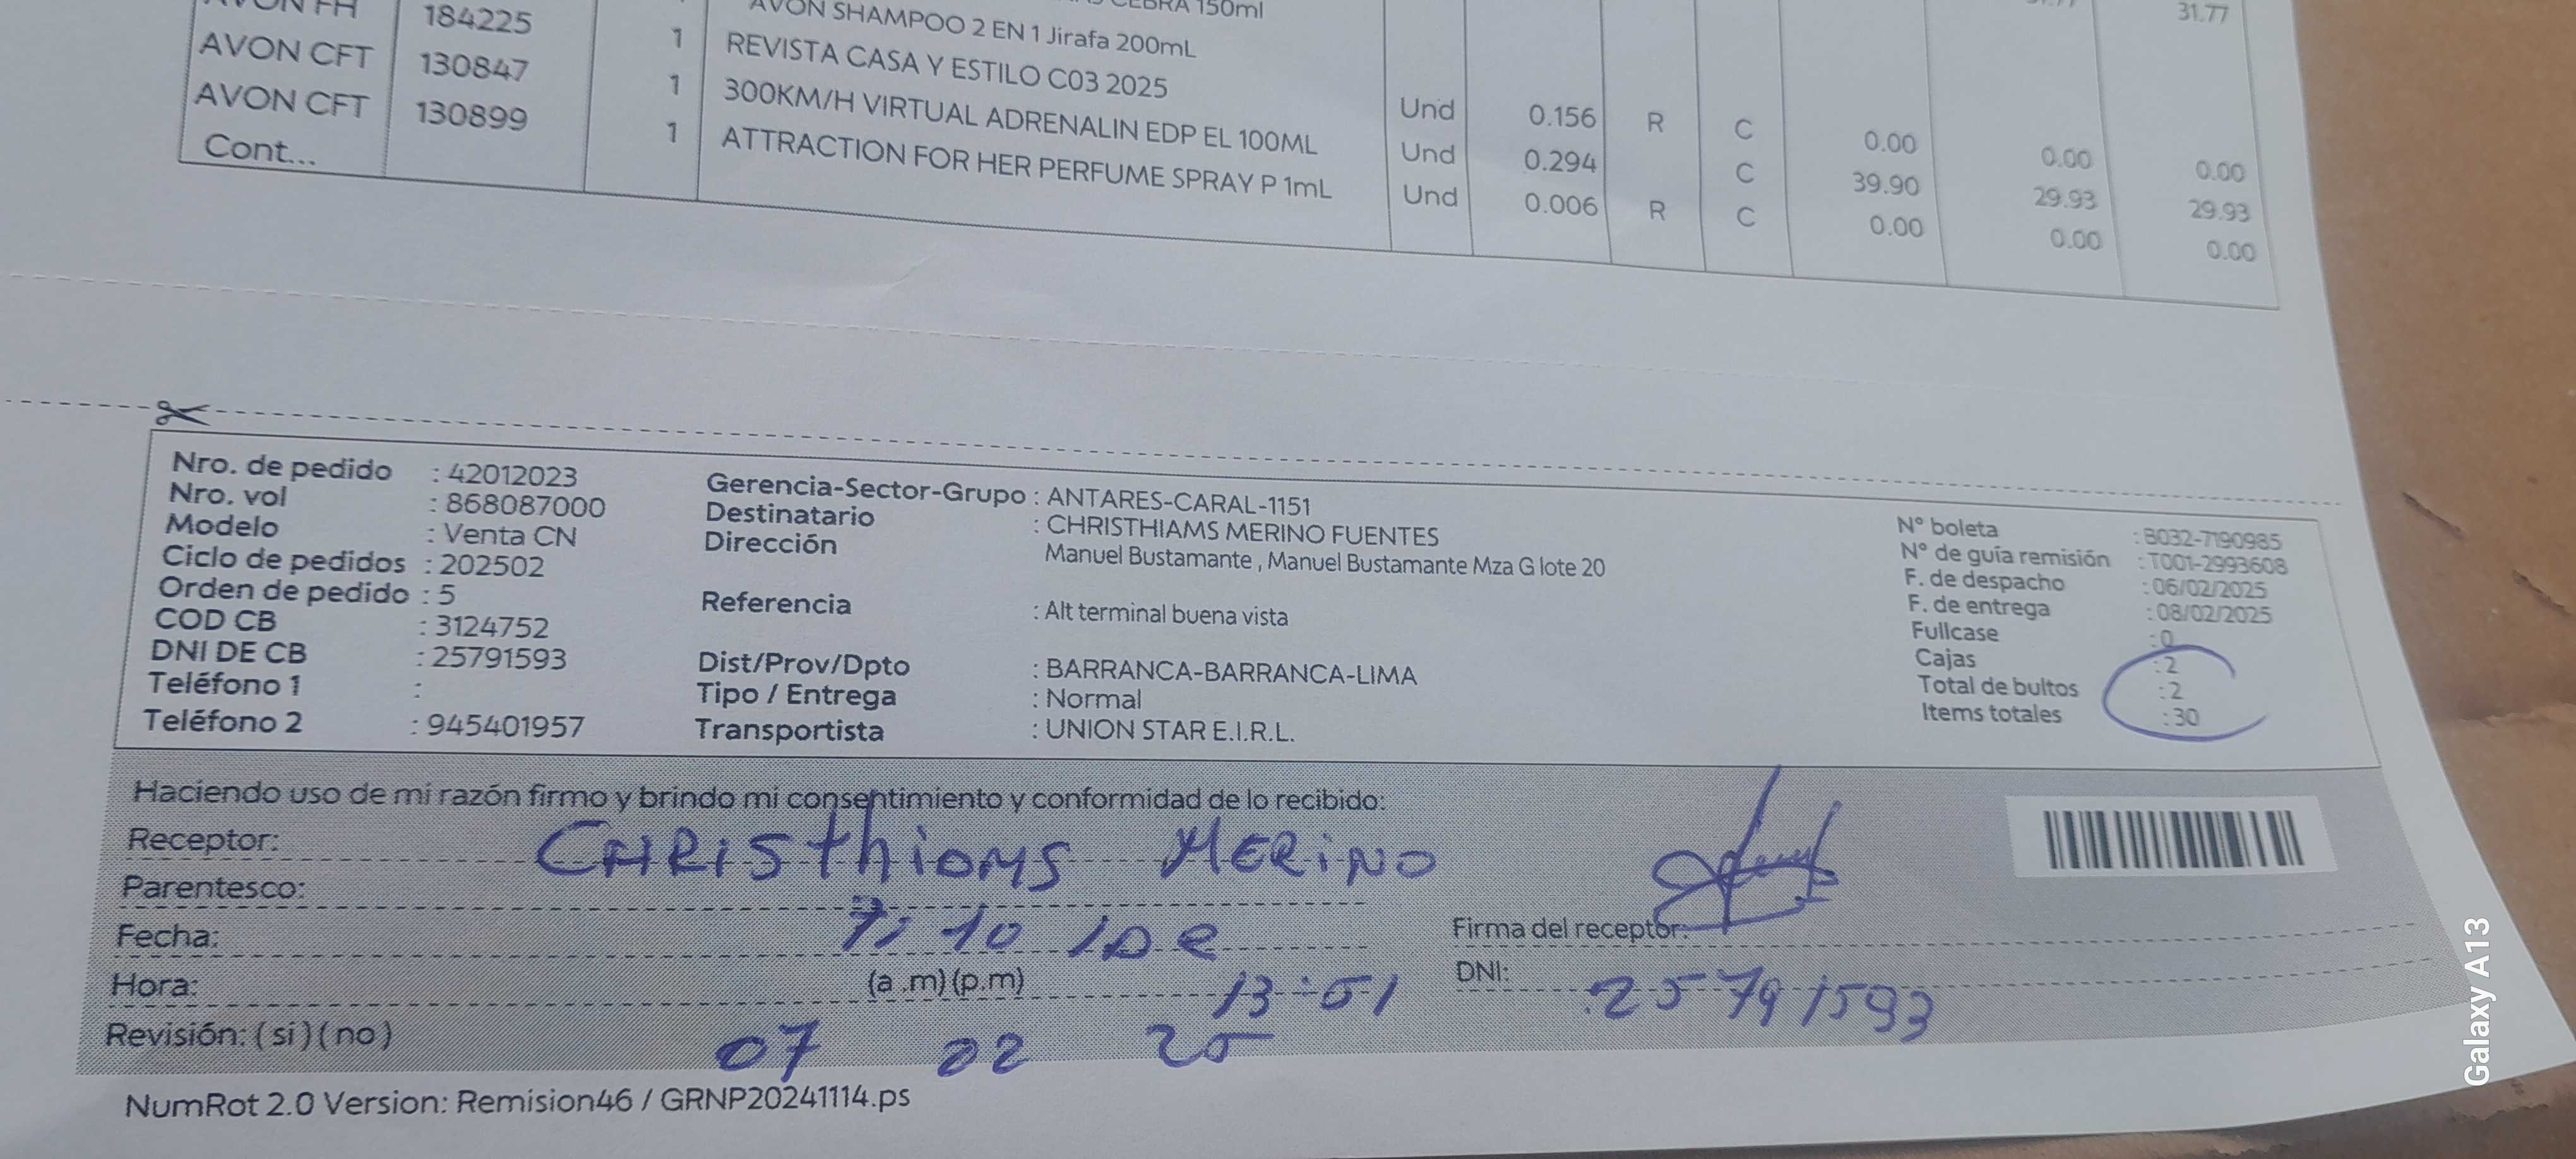 CEBRA 150ml 31.77
AVON FH 184225 AVON SHAMPOO 2 EN 1 Jirafa 200mL
AVON CFT 130847 1 REVISTA CASA Y ESTILO C03 2025 Und 0.156 R C 0.00 0.00 0.00
AVON CFT 130899 1 300KM/H VIRTUAL ADRENALIN EDP EL 100ML Und 0.294 C 39.90 29.93 29.93
Cont... 1 ATTRACTION FOR HER PERFUME SPRAY P 1mL Und 0.006 R C 0.00 0.00 0.00
Nro. de pedido : 42012023
Nro. vol : 868087000
Modelo : Venta CN
Ciclo de pedidos : 202502
Orden de pedido : 5
COD CB : 3124752
DNI DE CB : 25791593
Teléfono 1 :
Teléfono 2 : 945401957
Gerencia-Sector-Grupo : ANTARES-CARAL-1151
Destinatario : CHRISTHIAMS MERINO FUENTES
Dirección Manuel Bustamante , Manuel Bustamante Mza G lote 20
Referencia : Alt terminal buena vista
Dist/Prov/Dpto : BARRANCA-BARRANCA-LIMA
Tipo / Entrega : Normal
Transportista : UNION STAR E.I.R.L.
N° boleta : B032-7190985
N° de guía remisión : T001-2993608
F. de despacho : 06/02/2025
F. de entrega : 08/02/2025
Fullcase : 0
Cajas : 2
Total de bultos : 2
Items totales : 30
Haciendo uso de mi razón firmo y brindo mi consentimiento y conformidad de lo recibido:
Receptor: CHRISthiams MERiNO
Parentesco:
Fecha:
Firma del receptor:
Hora: (a .m) (p.m) 13:51
DNI: 25791593
Revisión: ( si ) ( no ) 07 02 25
NumRot 2.0 Version: Remision46 / GRNP20241114.ps
Galaxy A13